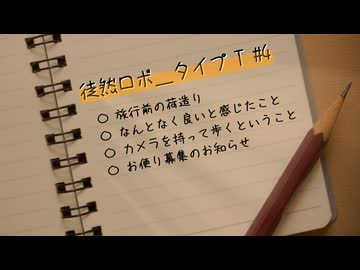 徒然ロボ＿タイプT #4
○ 旅行前の荷造り
○ なんとなく良いと感じたこと
○ カメラを持って歩くということ
○ お便り募集のお知らせ